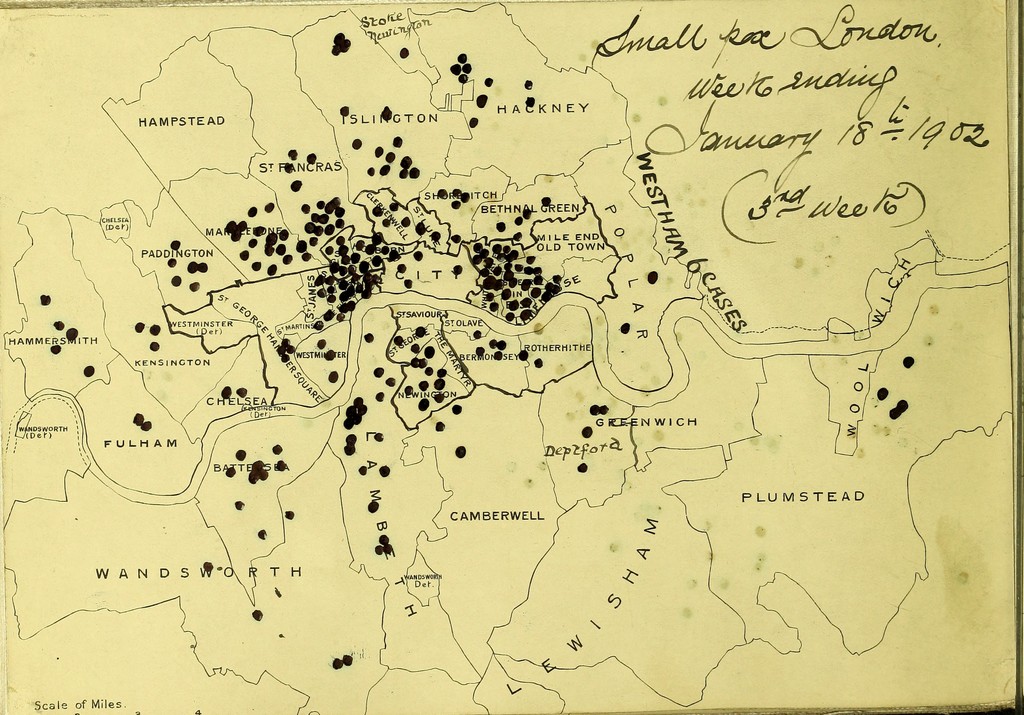 Small pox London.
Week ending
January 18th 1902
(3rd Week)
Stoke
Newington
HAMPSTEAD
ISLINGTON
HACKNEY
ST PANCRAS
WESTHAM 6 CASES
SHOREDITCH
CLERKENWELL
ST LUKE
BETHNAL GREEN
CHELSEA
(Det)
MARYLEBONE
PADDINGTON
MILE END
OLD TOWN
POPLAR
HOLBORN
CITY
ST JAMES
WOOLWICH
ST GEORGE HANOVER SQUARE
WESTMINSTER
(Det)
ST MARTINS
WESTMINSTER
ST SAVIOUR
ST OLAVE
ST GEORGE THE MARTYR
BERMONDSEY
ROTHERHITHE
HAMMERSMITH
KENSINGTON
NEWINGTON
CHELSEA
KENSINGTON
(Det)
WANDSWORTH
(Det)
FULHAM
GREENWICH
Deptford
BATTERSEA
LAMBETH
PLUMSTEAD
CAMBERWELL
WANDSWORTH
WANDSWORTH
Det.
LEWISHAM
Scale of Miles.
2 3 4